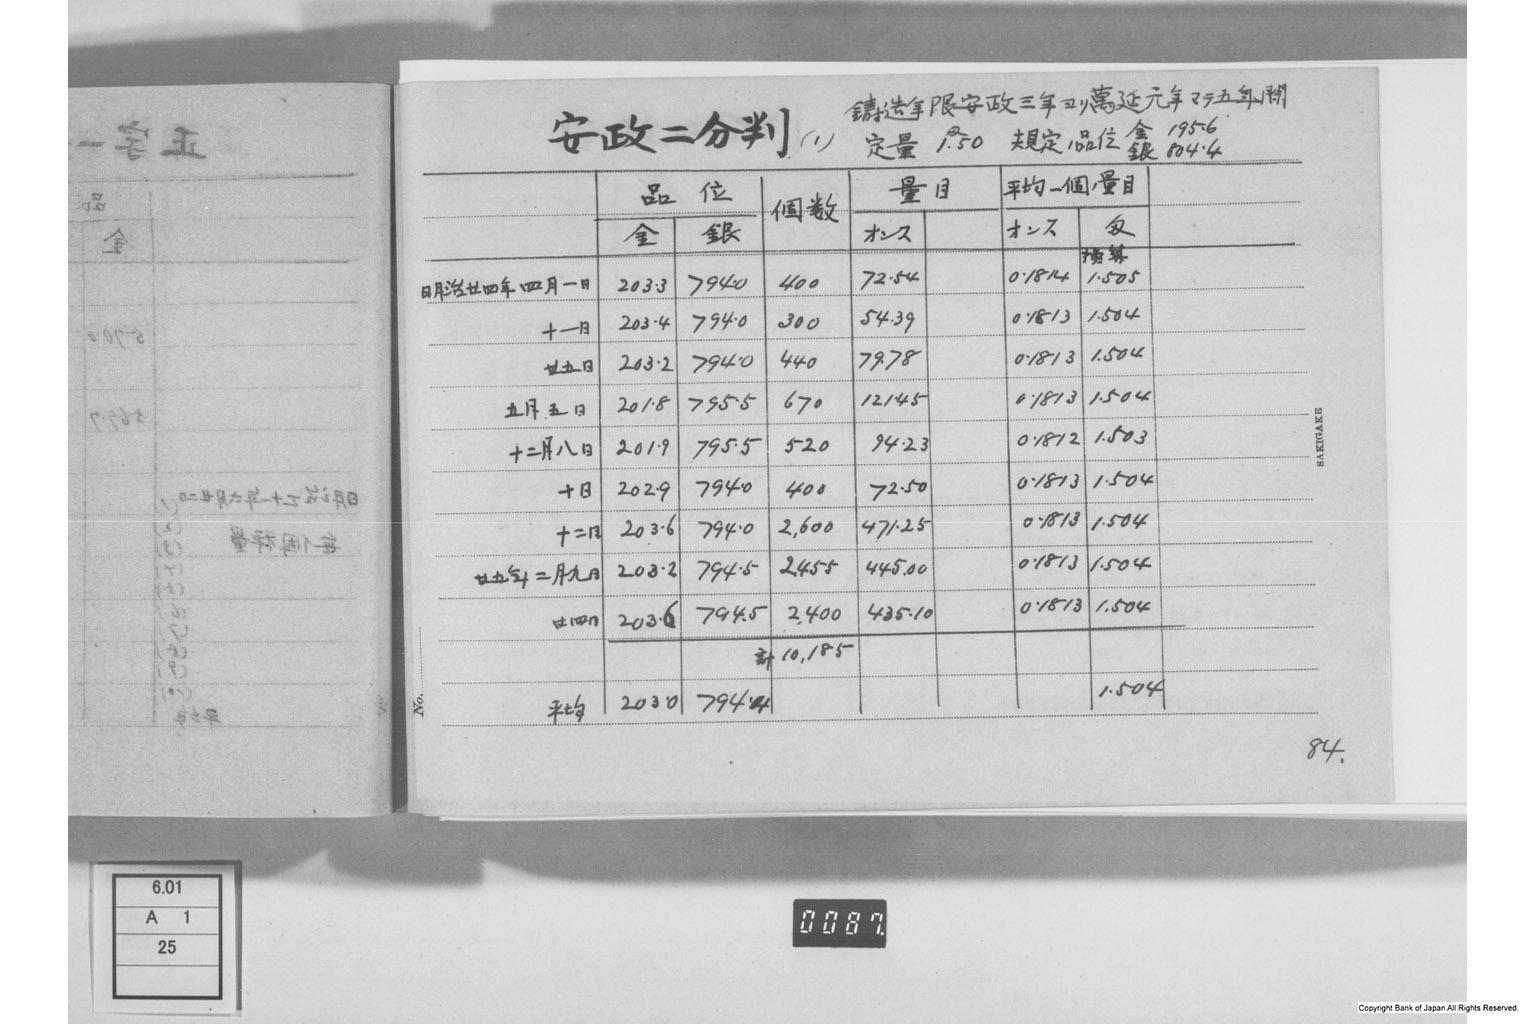 安政二分判 (1)
鋳造年限安政三年ヨリ萬延元年マテ五年間
定量 匁1.50 規定品位 金 195.6
銀 804.4
品位 個数 量目 平均一個量目
金 銀 オンス オンス 匁
換算
明治廿四年四月一日 203.3 794.0 400 72.54 0.1814 1.505
十一日 203.4 794.0 300 54.39 0.1813 1.504
廿五日 203.2 794.0 440 79.78 0.1813 1.504
五月五日 201.8 795.5 670 121.45 0.1813 1.504
十二月八日 201.9 795.5 520 94.23 0.1812 1.503
十日 202.9 794.0 400 72.50 0.1813 1.504
十二日 203.6 794.0 2,600 471.25 0.1813 1.504
廿五年二月九日 203.2 794.5 2,455 445.00 0.1813 1.504
廿四日 203.6 794.5 2,400 435.10 0.1813 1.504
計 10,185
平均 203.0 794.4 1.504
No.
SAKIGAKE
84.
6.01
A 1
25
0087
Copyright Bank of Japan All Rights Reserved.